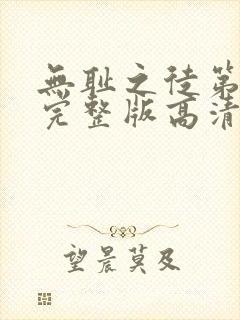 無耻之徒第
完整版高清
望晨莫及